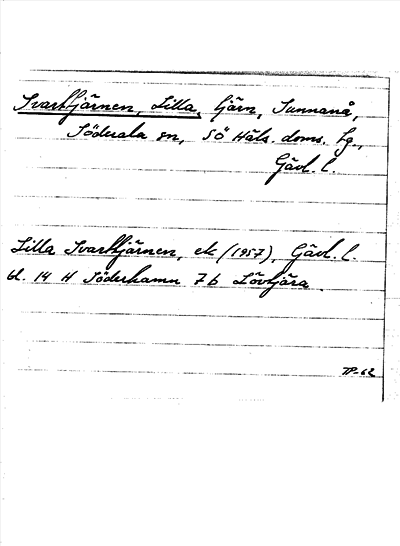 Svarttjärnen, Lilla, tjärn, Sunnanå,
Söderala sn, SÖ Häls. doms. hg.,
Gävl. l.
Lilla Svarttjärnen, ek (1957), Gävl. l.
bl. 14 H Söderhamn 7 b Lövtjära.
TP-62